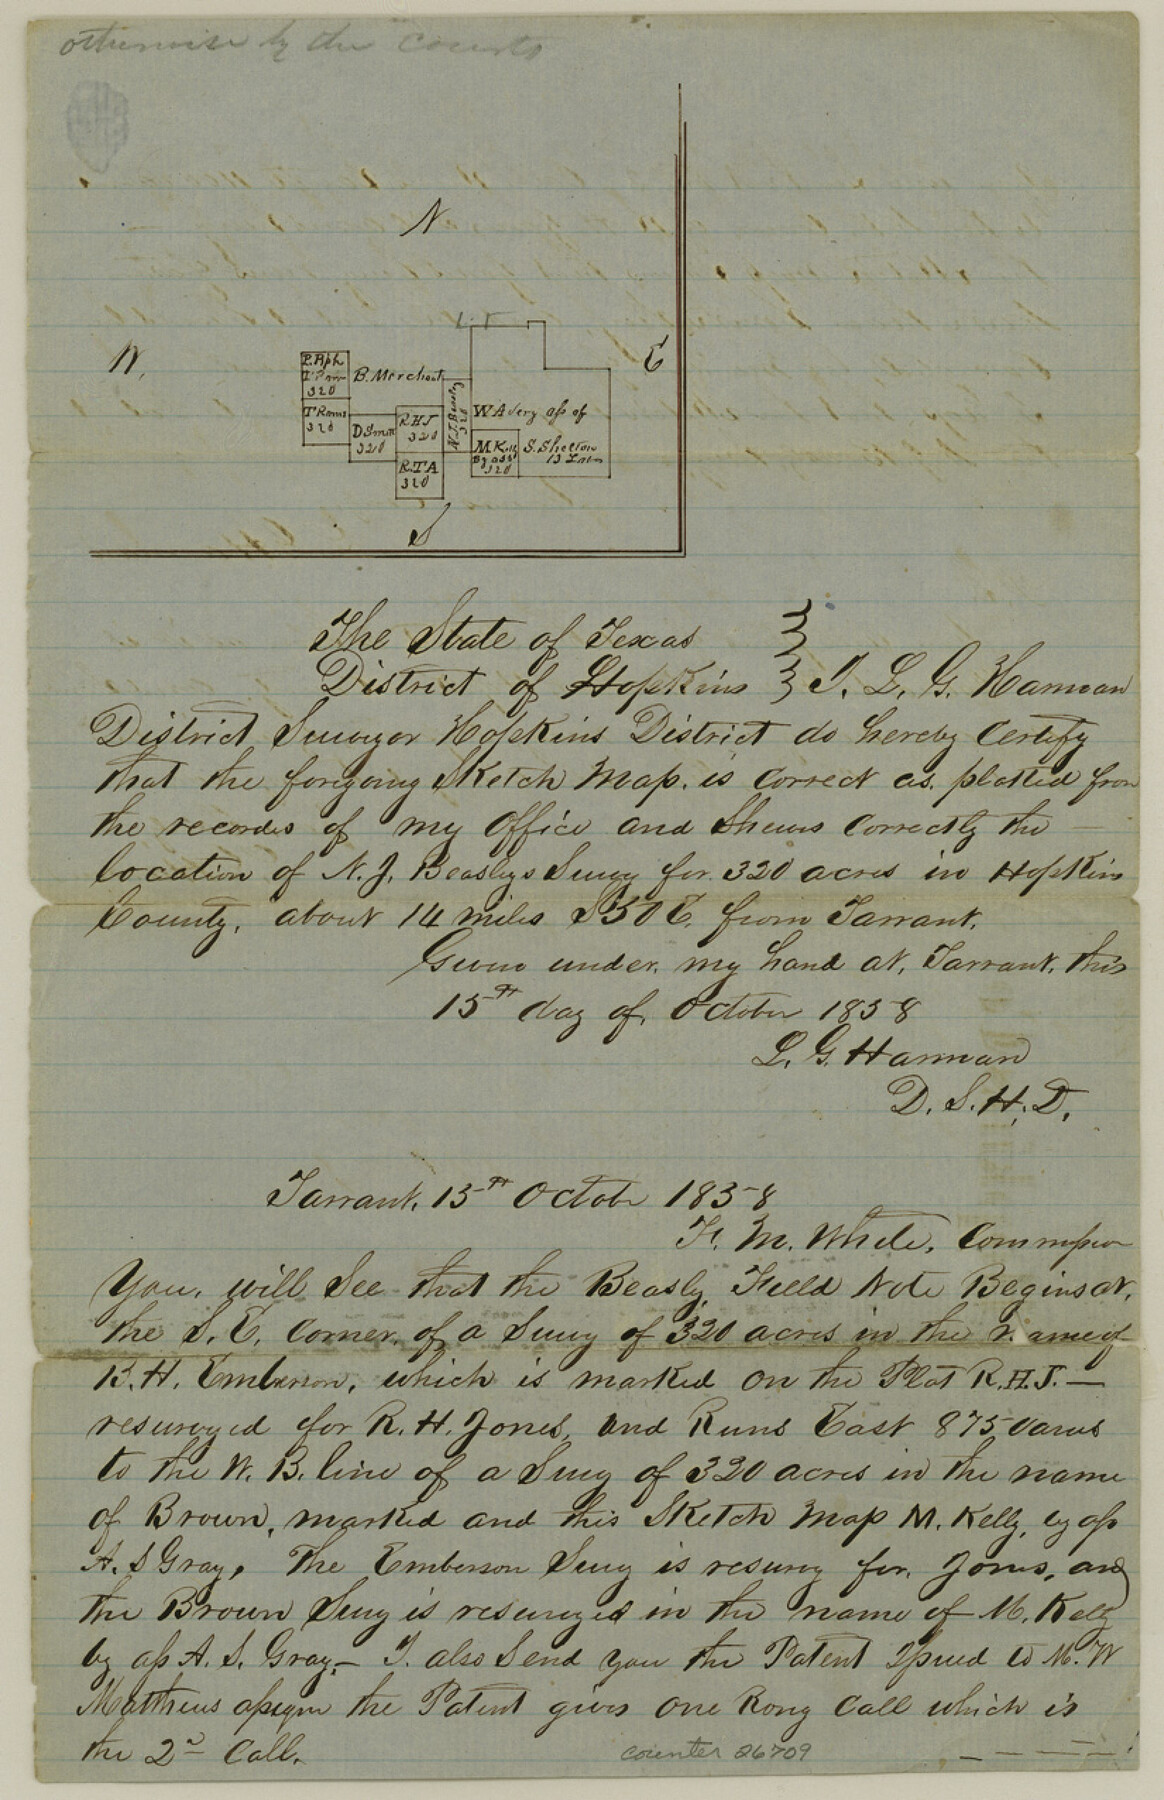 otherwise by the Courts
N
L. F
W.
E
P. Rph
T Ram
320
B. Merchant
T Rams
320
D Smith
320
R.H.J
320
N.J. Beasly
320
W Avery ass of
S. Shelton
13 Labr
M Kelly
By ass
320
R.T A
320
S
The State of Texas
District of Hopkins } I, L. G. Harman
District Surveyor Hopkins District do hereby Certify
that the foregoing Sketch Map. is Correct as. platted from
the recordes of my Office and Shews Correctly the —
location of N. J. Beaslys Survy for. 320 acres in Hopkins
County, about 14 miles S 50 E. from Tarrant.
Given under. my hand at, Tarrant, this
15th day of, October 1858
L. G. Harman
D. S. H. D.
Tarrant, 15th October 1858
F. M. White, Commissior
You, will See that the Beasly, Field Note Begins at,
the S. E. Corner, of a Survy of 320 acres in the name of
B. H. Emberson, which is marked on the Plat R.H.J. —
resurvyed for R. H. Jones, and Runs East 875 varas
to the W. B. line of a Survy of 320 acres in the name
of Brown, marked and this Sketch Map M. Kelly, by ass
A. S Gray, The Emberson Survy is resurvy for. Jones, and
the Brown Survy is resurvyed in the name of M. Kelly
by ass A. S. Gray,— I. also Send you the Patent Issued to M. W
Matthews assignee the Patent gives one Rong Call which is
the 2d Call.
counter 26709